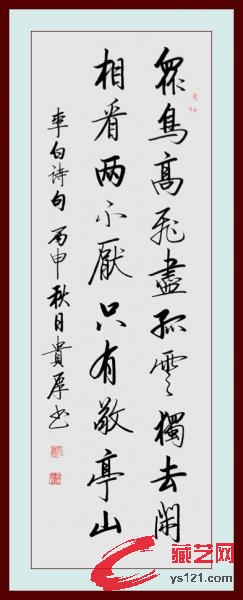 眾鳥高飛盡孤雲獨去閑
相看两不厭只有敬亭山
李白诗句 丙申秋日貴厚书
藏艺网
ys121.com